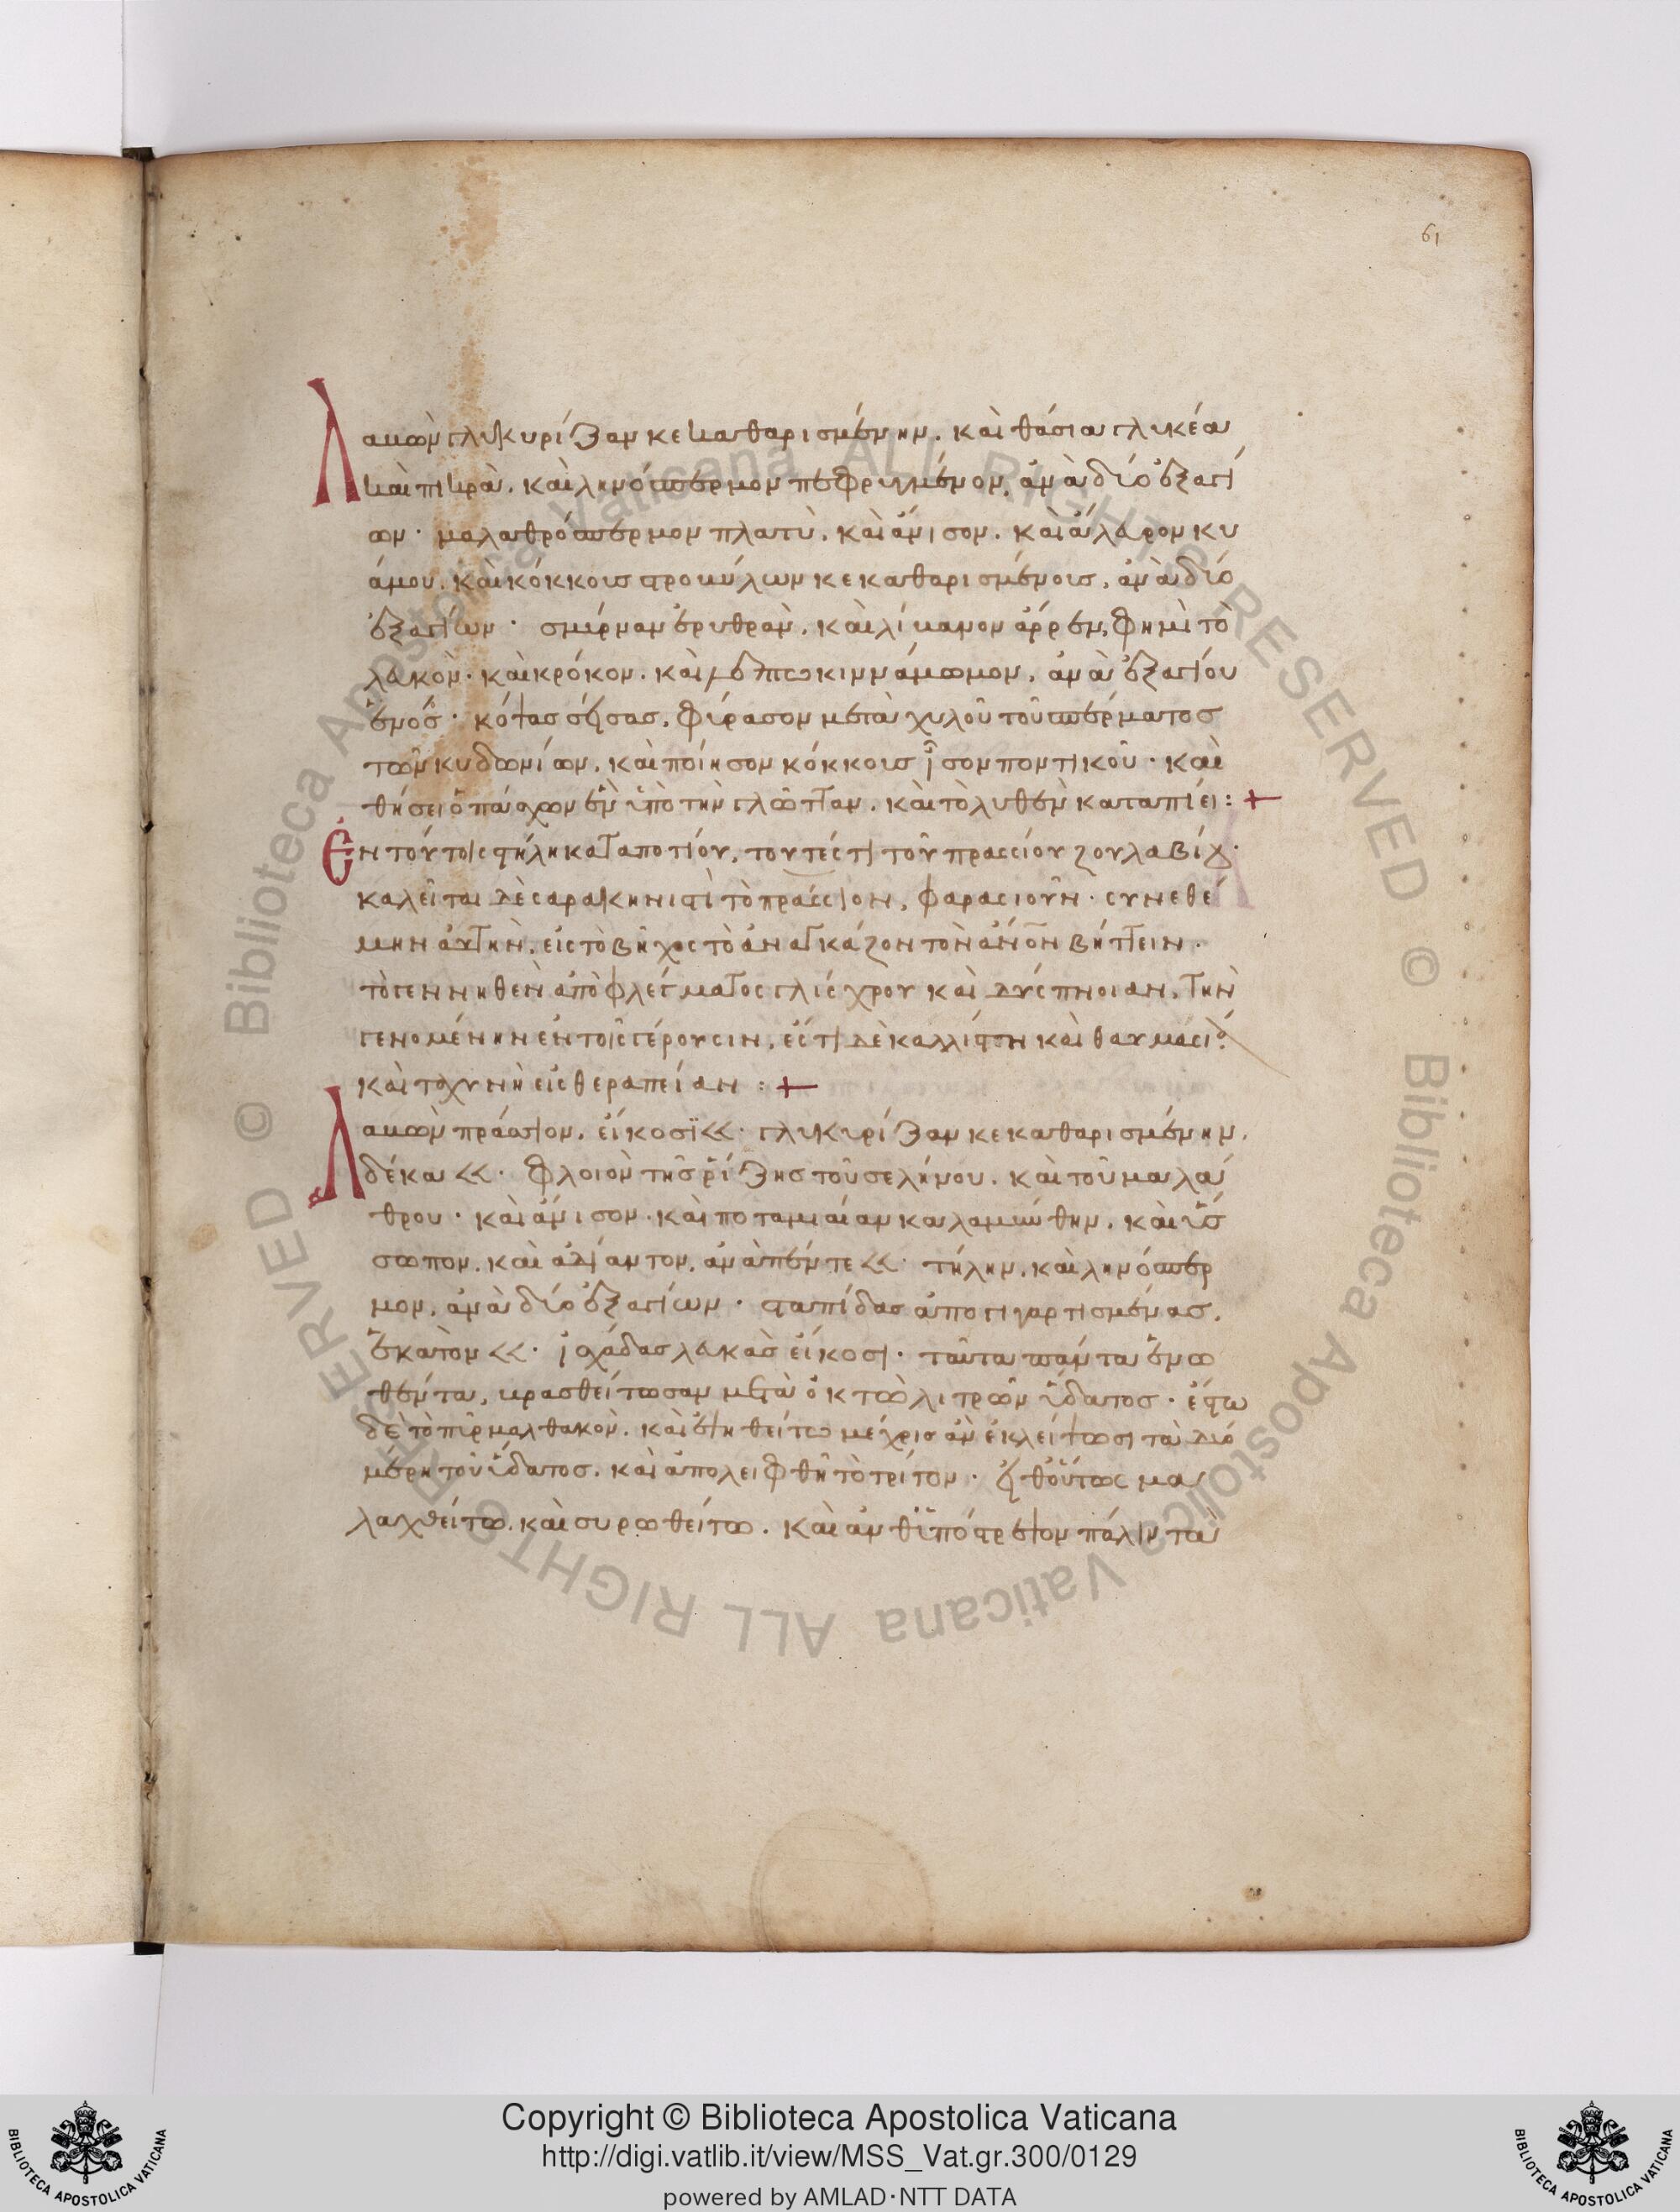 61
Λαικὼν γλυκυρίζαν κεκαθαρισμένην. καὶ θάσια γλυκέα
καὶ πικρὰ. καὶ λινόσπερμον πεφρυγμένον, ἀνὰ δύο ἑξαγί
ων· μαλαθρόσπερμον πλατὺ. καὶ ἄνισον. καὶ ἄλευρον κυ
άμου. καὶ κόκκους στροβίλων κεκαθαρισμένους, ἀνὰ δύο
ἑξαγίων· σμύρναν ἐρυθρὰν. καὶ λίβανον ἄρρεν, φημὶ τὸ
λευκὸν· καὶ κρόκον. καὶ κιννάμωμον, ἀνὰ ἑξαγίου
ἑνὸς· κόψας σήσας, φύρασον μετὰ χυλοῦ τοῦ σπέρματος
τῶν κυδωνίων. καὶ ποίησον κόκκους ἶσον ποντικοῦ· καὶ
θήσει ὁ πάσχων ἓν ὑπὸ τὴν γλῶτταν. καὶ τὸ λυθὲν καταπίει:+
Ἐν τούτοις στήλη καταποτίου, τουτέστι τοῦ πρασσίου ζουλαβίχ·
καλεῖται δὲ σαρακηνιστὶ τὸ πράσσιον, φαρασιοῦν· συνεθέ
μην αὐτὴν, εἰς τὸ βῆχος τὸ ἀναγκάζον τὸν ἄνον βήττειν·
τὸ γεννηθὲν ἀπὸ φλέγματος γλίσχρου καὶ δύσπνοιαν, τὴν
γενομένην ἐν τοῖς γέρουσιν, ἔστι δὲ καλλίστη καὶ θαυμάσιος
καὶ ταχυνὴ εἰς θεραπείαν:+
Λαικὼν πράσσιον, εἴκοσι <<· γλυκυρίζαν κεκαθαρισμένην,
δέκα <<· φλοιὸν τῆς ῥίζης τοῦ σελήνου. καὶ τοῦ μαλά
θρου· καὶ ἄνισον· καὶ ποταμιαίαν καλαμίνθην, καὶ ὕσ
σωπον, καὶ ἀδίαντον, ἀνὰ πέντε <<· τήλην, καὶ λινόσπερ
μον, ἀνὰ δύο ἑξαγίων· σταπίδας ἀπογιγαρτισμένας,
ἑκατὸν <<· ἰσχάδας λευκὰς εἴκοσι· ταῦτα πάντα ἑνω
θέντα, κρασθείτωσαν μετὰ ὀκτὼ λιτρῶν ὕδατος· ἔστω
δὲ τὸ πῦρ μαλθακὸν. καὶ ἑψηθείτω μέχρις ἂν ἐκλείψωσι τὰ δύο
μέρη τοῦ ὕδατος, καὶ ἀπολειφθῆ τὸ τρίτον· εἶθ οὕτως μα
λαχθείτω. καὶ συρωθείτω. καὶ ἀνθυπόστρεψον πάλιν τὰ
Copyright © Biblioteca Apostolica Vaticana
http://digi.vatlib.it/view/MSS_Vat.gr.300/0129
powered by AMLAD·NTT DATA
BIBLIOTECA APOSTOLICA VATICANA
BIBLIOTECA APOSTOLICA VATICANA
© Biblioteca Apostolica Vaticana ALL RIGHTS RESERVED © Biblioteca Apostolica Vaticana ALL RIGHTS RESERVED